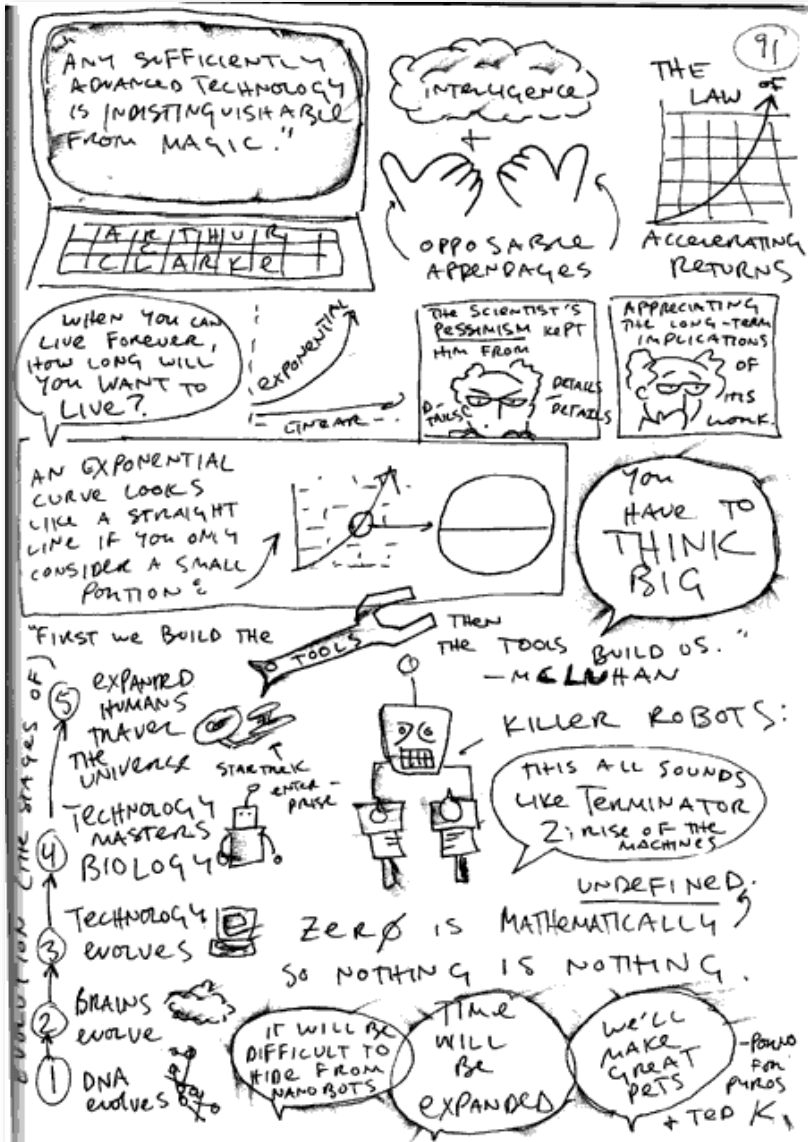 91
"ANY SUFFICIENTLY
ADVANCED TECHNOLOGY
IS INDISTINGUISHABLE
FROM MAGIC."
ARTHUR
C
CLARKE
INTELLIGENCE
+
OPPOSABLE
APPENDAGES
THE
LAW OF
ACCELERATING
RETURNS
WHEN YOU CAN
LIVE FOREVER,
HOW LONG WILL
YOU WANT TO
LIVE?
EXPONENTIAL
LINEAR
THE SCIENTIST'S
PESSIMISM KEPT
HIM FROM
D-
TAILS
DETAILS
DETAILS
APPRECIATING
THE LONG-TERM
IMPLICATIONS
OF
HIS
WORK.
AN EXPONENTIAL
CURVE LOOKS
LIKE A STRAIGHT
LINE IF YOU ONLY
CONSIDER A SMALL
PORTION:
YOU
HAVE TO
THINK
BIG
"FIRST WE BUILD THE TOOLS THEN
THE TOOLS BUILD US."
—MCLUHAN
EVOLUTION (THE STAGES OF)
5 EXPANDED
HUMANS
TRAVEL
THE
UNIVERSE
STAR TREK
ENTER-
PRISE
4 TECHNOLOGY
MASTERS
BIOLOGY
3 TECHNOLOGY
EVOLVES
2 BRAINS
EVOLVE
1 DNA
EVOLVES
KILLER ROBOTS:
THIS ALL SOUNDS
LIKE TERMINATOR
2: RISE OF THE
MACHINES
ZERØ IS MATHEMATICALLY UNDEFINED.
SO NOTHING IS NOTHING.
IT WILL BE
DIFFICULT TO
HIDE FROM
NANOBOTS
TIME
WILL
BE
EXPANDED
WE'LL
MAKE
GREAT
PETS
-PORNO
FOR
PYROS
+ TED K.